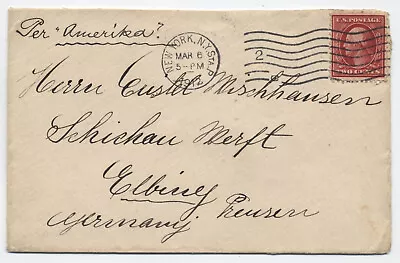 Per "Amerika".
NEW YORK, N.Y. STA. P
MAR 6
5-PM
1912
2
U.S. POSTAGE
TWO CENTS
Herrn Gustav Mischhausen
Schichau Werft
Elbing
Germany Preusen